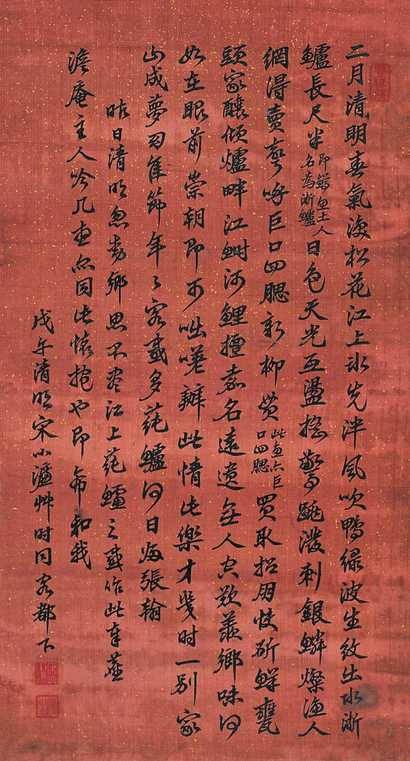 二月清明春氣淺松花江上冰先泮風吹鴨綠波生紋出水淅
鱸長尺半即鱖魚土人名為淅鱸日色天光互盪搖驚跳潑刺銀鱗燦漁人
網得賣高呼巨口四腮新柳貫此魚亦巨口四腮買取招朋快斫鮮甕
頭家釀傾爐畔江魴河鯉擅嘉名遠道無人空歆羨鄉味河
如在眼前崇朝即可咄嗟辦此情此樂才幾時一別家
山成夢幻佳節年年客感多蒓鱸何日海張翰
昨日清明忽動鄉思不盡江上蒓鱸之感作此奉塵
澹庵主人吟几想亦同此懷抱也即希和我
戊午清明宋小濂艸時同客都下